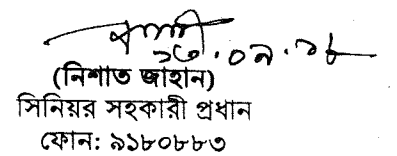 ১৩.০৯.১৮
(নিশাত জাহান)
সিনিয়র সহকারী প্রধান
ফোন: ৯১৮০৮৮৩